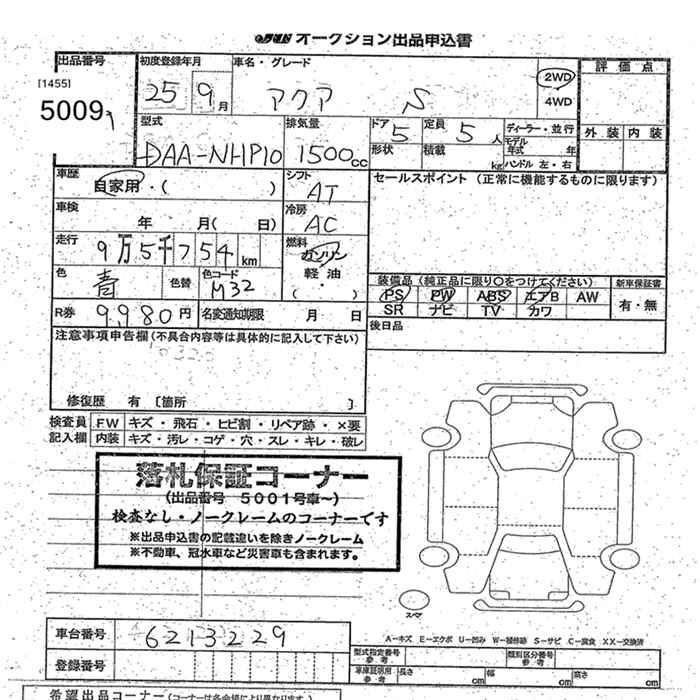 オークション出品申込書
出品番号
[1455]
5009
初度登録年月
25 9月
車名・グレード
アクア S
2WD
4WD
評価点
外装 内装
型式
DAA-NHP10
排気量
1500cc
ドア 5
形状
定員 5人
積載 kg
ディーラー・並行
モデル年式 年
ハンドル 左・右
車歴
自家用・( )
シフト
AT
セールスポイント (正常に機能するものに限ります)
車検
年 月( 日)
冷房
AC
走行
9万5千754km
燃料
ガソリン
軽油
( ・ )
色
青
色替
色コード
M32
装備品 (純正品に限り○をつけてください)
新車保証書
PS PW ABS エアB AW
有・無
SR ナビ TV カワ
R券 9,980円
名変通知期限 月 日
後日品
注意事項申告欄 (不具合内容等は具体的に記入して下さい)
修復歴 有 [箇所 ]
検査員 FW キズ・飛石・ヒビ割・リペア跡・×要
記入欄 内装 キズ・汚レ・コゲ・穴・スレ・キレ・破レ
落札保証コーナー
(出品番号 5001号車~)
検査なし・ノークレームのコーナーです
※出品申込書の記載違いを除きノークレーム
※不動車、冠水車など災害車も含まれます。
スペア
A-キズ E-エクボ U-凹み W-補修跡 S-サビ C-腐食 XX-交換済
車台番号 6213229
型式指定番号
参考
類別区分番号
参考
登録番号
車庫証明用
参考
長さ cm 幅 cm 高さ cm
希望出品コーナー